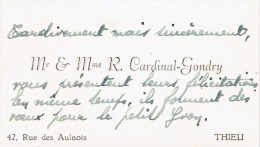 Tardivement mais sincèrement,
Mr & Mme R. Cardinal-Gondry
vous présentent leurs félicitations
en même temps, ils forment des
vœux pour le petit Yvon.
42, Rue des Aulnois THIEU